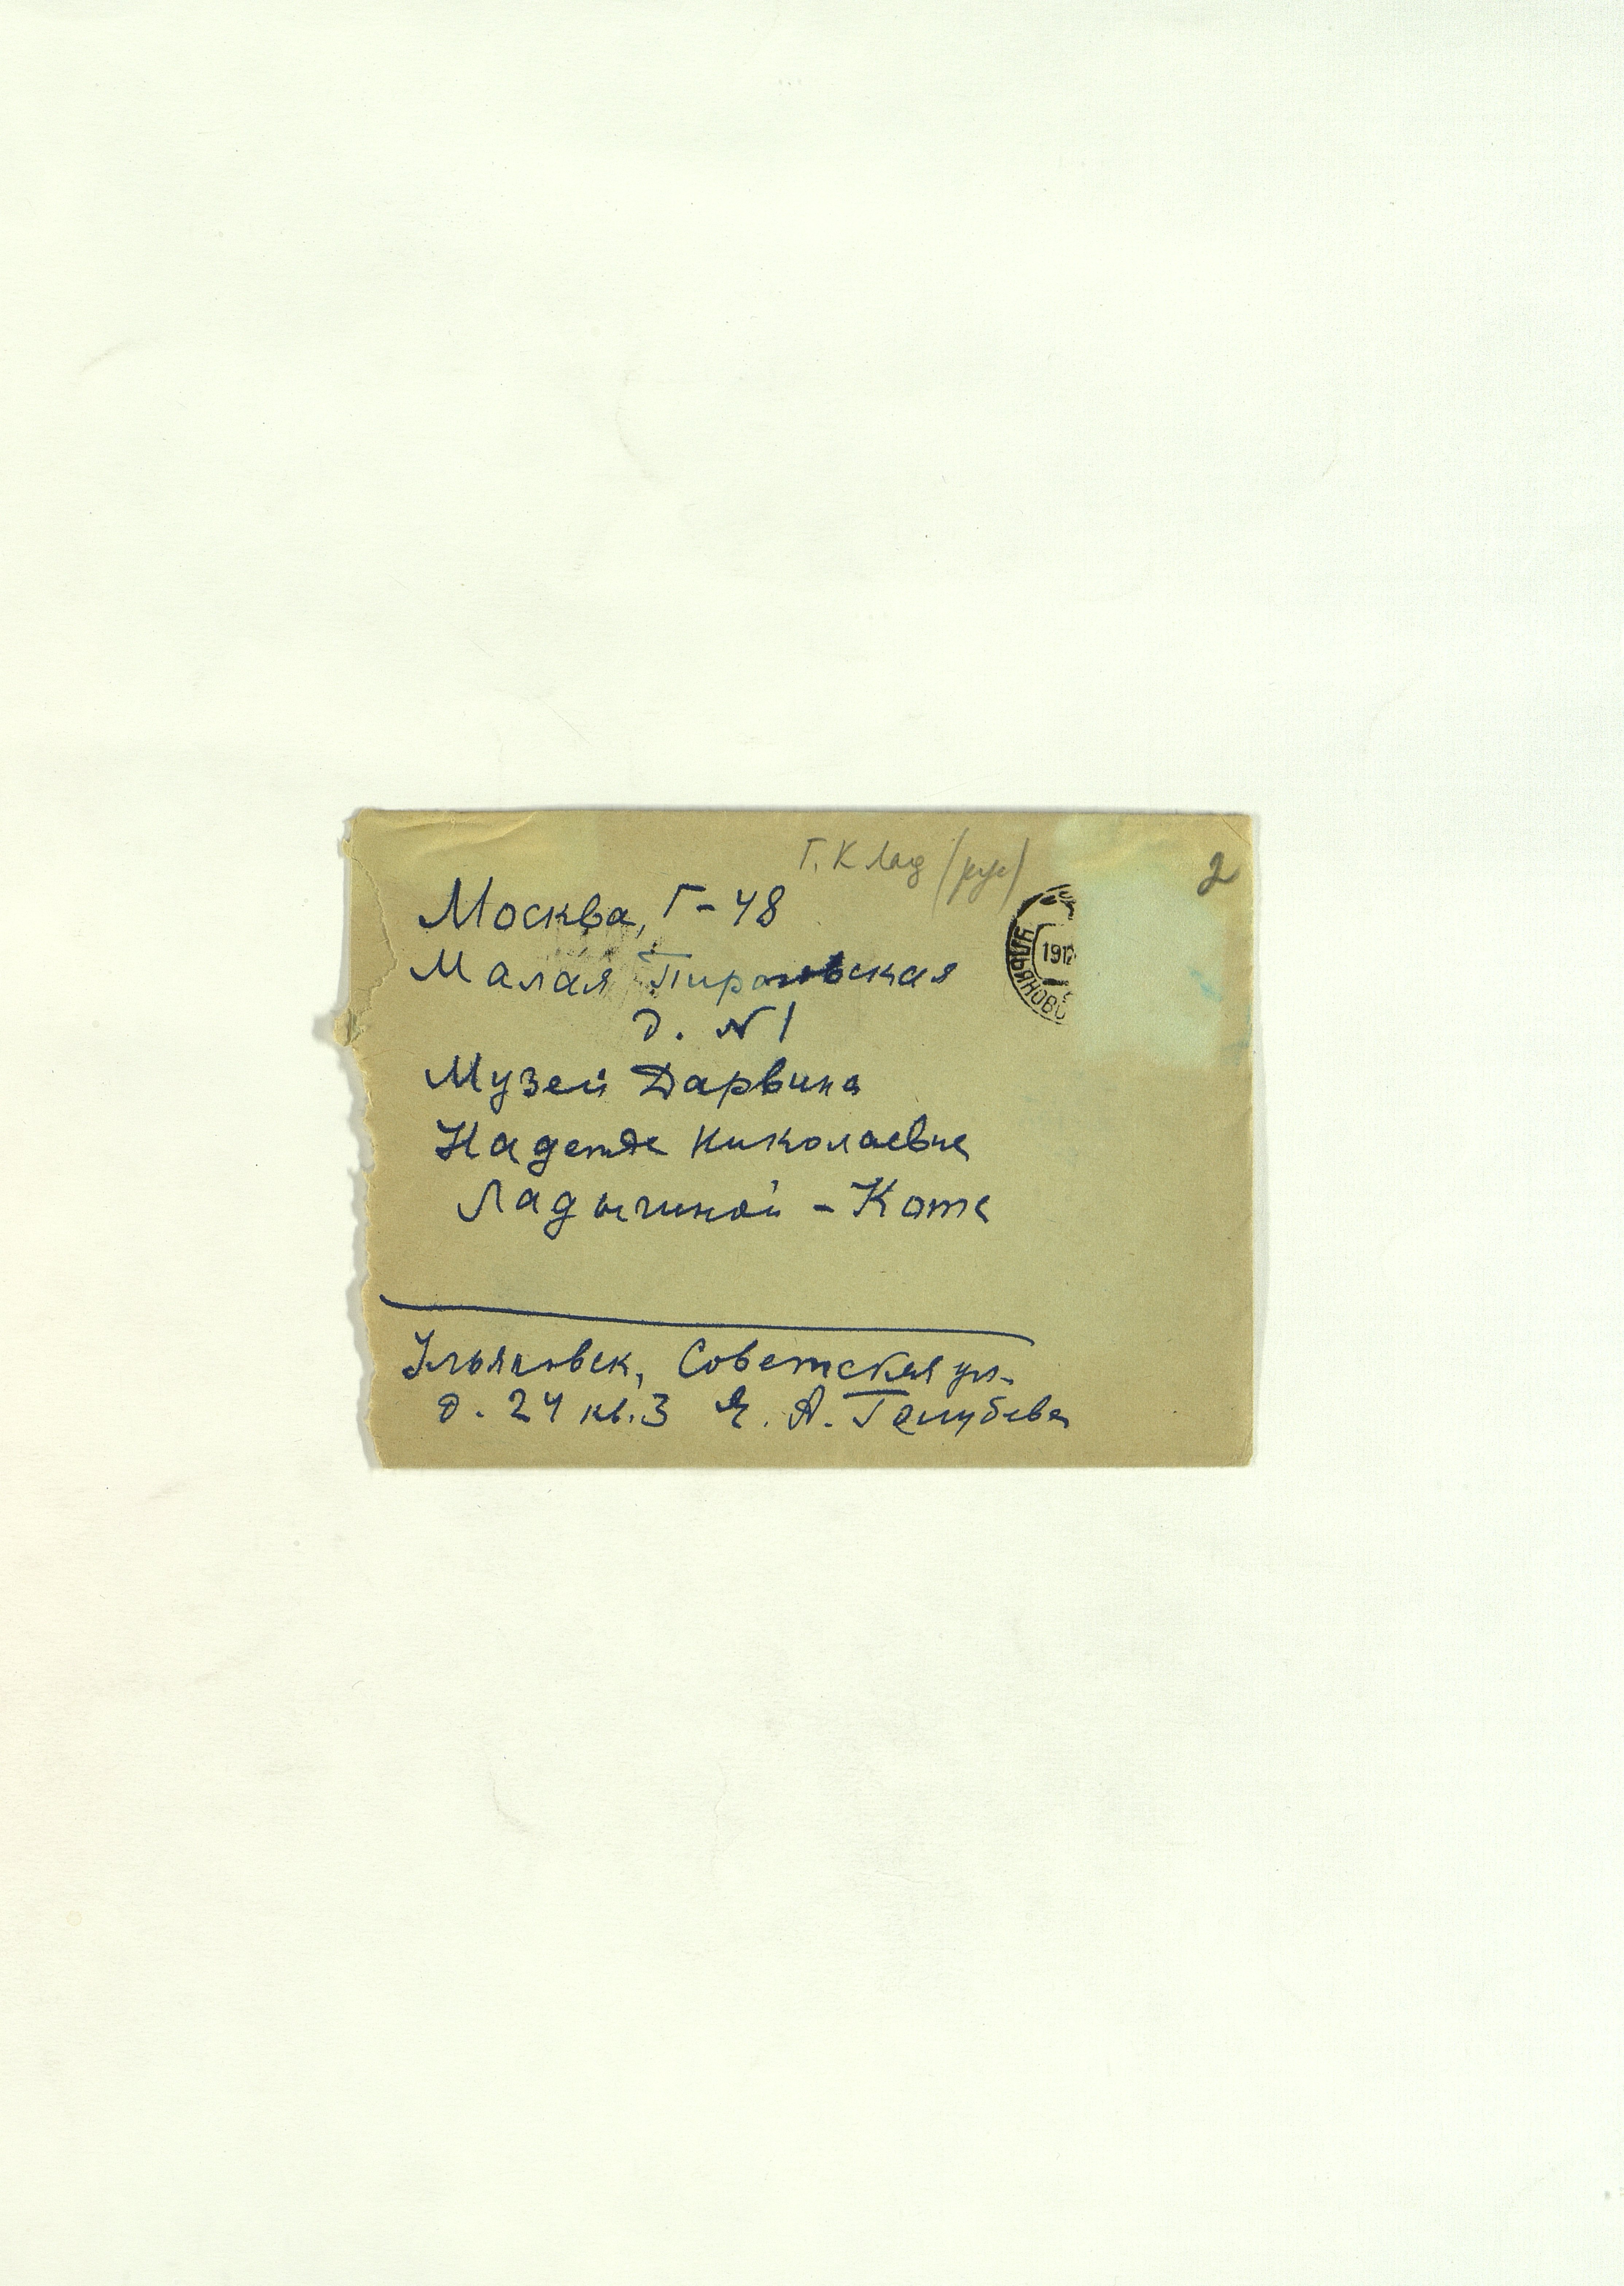 Г. К Лад
2
Москва, Г-48
Малая Пироговская
д. N 1
Музей Дарвина
Надежде Николаевне
Ладыгиной - Котс
УЛЬЯНОВС
1912
Ульяновск, Советская ул.
д. 24 кв. 3 Я. А. Голубева